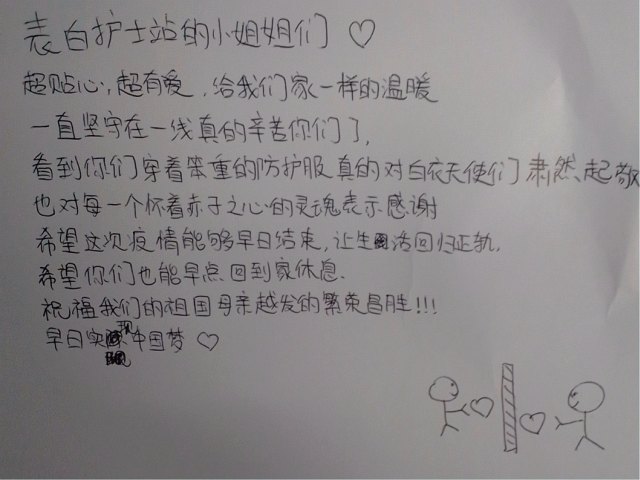 表白护士站的小姐姐们♡
超贴心,超有爱,给我们家一样的温暖
一直坚守在一线真的辛苦你们了,
看到你们穿着笨重的防护服真的对白衣天使们肃然起敬
也对每一个怀着赤子之心的灵魂表示感谢
希望这次疫情能够早日结束,让生活回归正轨.
希望你们也能早点回到家休息.
祝福我们的祖国母亲越发的繁荣昌胜!!!
早日实现中国梦♡